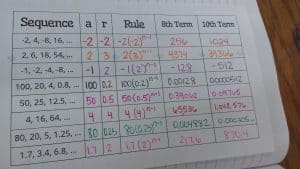 Sequence a r Rule 8th Term 10th Term
-2, 4, -8, 16, ... -2 -2 -2(-2)ⁿ⁻¹ 256 1024
2, 6, 18, 54, ... 2 3 2(3)ⁿ⁻¹ 4374 39366
-1, -2, -4, -8, ... -1 2 -1(2)ⁿ⁻¹ -128 -512
100, 20, 4, 0.8, ... 100 0.2 100(0.2)ⁿ⁻¹ 0.00128 0.0000512
50, 25, 12.5, ... 50 0.5 50(0.5)ⁿ⁻¹ 0.39062 0.09765
4, 16, 64, ... 4 4 4(4)ⁿ⁻¹ 65536 1,048,576
80, 20, 5, 1.25, ... 80 0.25 80(0.25)ⁿ⁻¹ 0.004882
1.7, 3.4, 6.8, ... 1.7 2 1.7(2)ⁿ⁻¹ 217.6 870.4